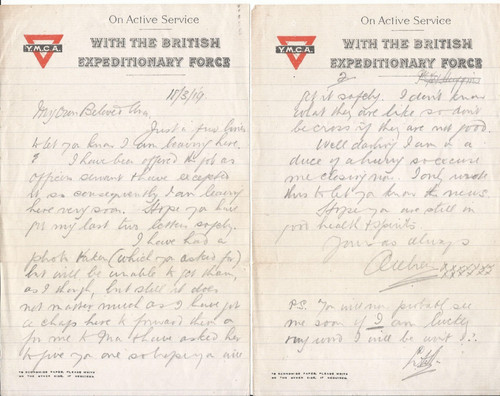 On Active Service
Y.M.C.A.
WITH THE BRITISH
EXPEDITIONARY FORCE
My Own Beloved
Just a few lines
to let you know I am leaving here.
I have been offered the job as
officers servant & have excepted
it so consequently I am leaving
here very soon. Hope you have
got my last two letters safely.
I have had a
photo taken (which you asked for)
but will be unable to get them,
as I though, but still it does
not matter much as I have got
a chap here to forward them on
for me to Ma & have asked her
to give you one so hope you will
TO ECONOMISE PAPER, PLEASE WRITE
ON THE OTHER SIDE, IF REQUIRED.
On Active Service
Y.M.C.A.
WITH THE BRITISH
EXPEDITIONARY FORCE
2
get it safely. I don't know
what they are like so dont
be cross if they are not good.
Well darling I am in a
duce of a hurry so excuse
me closing now. I only wrote
this to let you know the news.
Hope you are still in
good health & spirits
Yours as always
P.S. You will probably see
me soon if I am lucky
my word I will be wont I!
TO ECONOMISE PAPER, PLEASE WRITE
ON THE OTHER SIDE, IF REQUIRED.